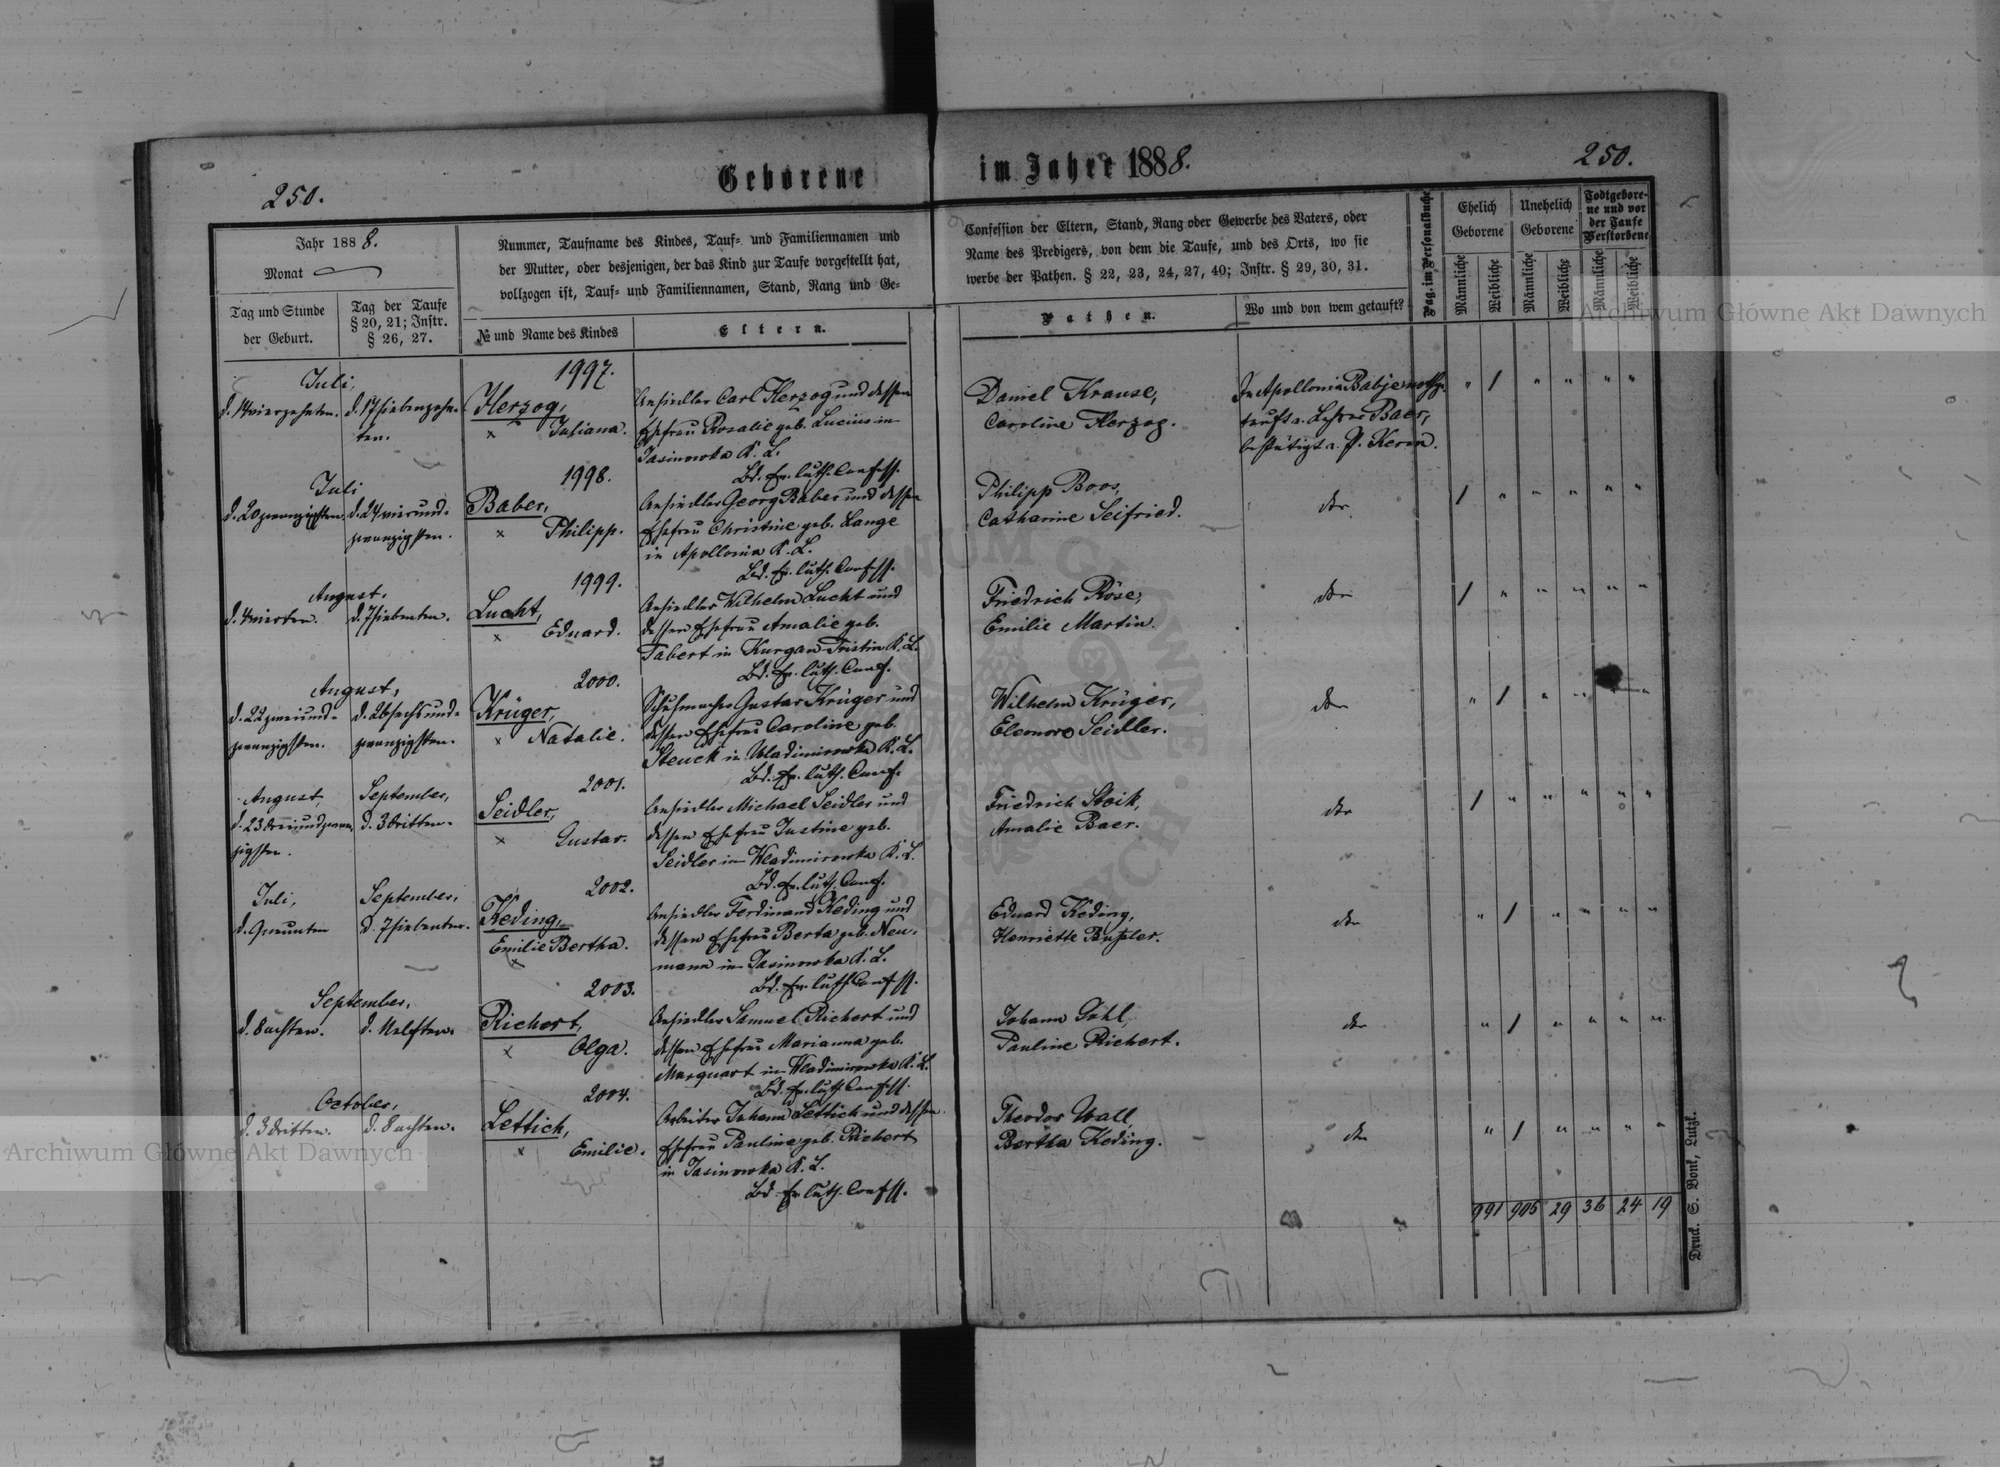 Geborene im Jahre 1888.
250.
250.
Jahr 1888.
Monat
Tag und Stunde
der Geburt.
Tag der Taufe
§ 20, 21; Instr.
§ 26, 27.
Nummer, Taufname des Kindes, Tauf- und Familiennamen und
der Mutter, oder desjenigen, der das Kind zur Taufe vorgestellt hat,
vollzogen ist, Tauf- und Familiennamen, Stand, Rang und Ge-
№ und Name des Kindes
Eltern.
Confession der Eltern, Stand, Rang oder Gewerbe des Vaters, oder
Name des Predigers, von dem die Taufe, und des Orts, wo sie
werbe der Pathen. § 22, 23, 24, 27, 40; Instr. § 29, 30, 31.
Pathen.
Wo und von wem getauft?
Pag. im Personalbuche
Ehelich
Geborene
Unehelich
Geborene
Todtgebore-
ne und vor
der Taufe
Verstorbene
Männliche
Weibliche
Männliche
Weibliche
Männliche
Weibliche
Juli,
d. 14 vierzehnten.
d. 17 siebenzehn-
ten.
1997.
Herzog,
Juliana.
Ansiedler Carl Herzog und dessen
Ehefrau Rosalie geb. Lucius in
Jasinowka K. L.
Bd. Ev. luth. Confess.
Daniel Krause,
Caroline Herzog.
In Apollonia
tauft v. Lehrer Baer,
bestätigt v. P. Kern.
" / " " " "
Juli
d. 20 zwanzigsten.
d. 24 vierund-
zwanzigsten.
1998.
Baber,
Philipp.
Ansiedler Georg Baber und dessen
Ehefrau Christine geb. Lange
in Apollonia K. L.
Bd. Ev. luth. Confess.
Philipp Boos,
Catharine Seifried.
/ " " " " "
August,
d. 4 vierten.
d. 7 siebenten.
1999.
Lucht,
Eduard.
Ansiedler Wilhelm Lucht und
dessen Ehefrau Amalie geb.
Tabert in Kurgan-Tristin K. L.
Bd. Ev. luth. Conf.
Friedrich Röse,
Emilie Martin.
/ " " " " "
August,
d. 22 zweiund-
zwanzigsten.
d. 26 sechsund-
zwanzigsten.
2000.
Krüger,
Natalie.
Schuhmacher Gustav Krüger und
dessen Ehefrau Caroline geb.
Steuck in Wladimirowka K. L.
Bd. Ev. luth. Conf.
Wilhelm Krüger,
Eleonore Seidler.
" / " "
August,
d. 23 dreiundzwan-
zigsten.
September,
d. 3 dritten.
2001.
Seidler,
Gustav.
Ansiedler Michael Seidler und
dessen Ehefrau Justine geb.
Seidler in Wladimirowka K. L.
Bd. Ev. luth. Conf.
Friedrich Stoik,
Amalie Baer.
/ " " " " "
Juli,
d. 9 neunten
September,
d. 7 siebenten.
2002.
Keding,
Emilie Bertha.
Ansiedler Ferdinand Keding und
dessen Ehefrau Berta geb. Neu-
mann in Jasinowka K. L.
Bd. Ev. luth. Confess.
Eduard Keding,
Henriette
" / " " " "
September,
d. 8 achten.
d. 11 elften.
2003.
Richert,
Olga.
Ansiedler Samuel Richert und
dessen Ehefrau Marianna geb.
Marquart in Wladimirowka K. L.
Bd. Ev. luth. Confess.
Johann
Pauline Richert.
" / " " " "
October,
d. 3 dritten.
d. 8 achten.
2004.
Lettich,
Emilie.
Arbeiter Johann Lettich und dessen
Ehefrau Pauline geb. Richert
in Jasinowka K. L.
Bd. Ev. luth. Confess.
Theodor Wall,
Bertha Keding.
" / " " " "
991 905 29 36 24 19
Druck. S. Bonk, Lutzk.
Archiwum Główne Akt Dawnych
Archiwum Główne Akt Dawnych